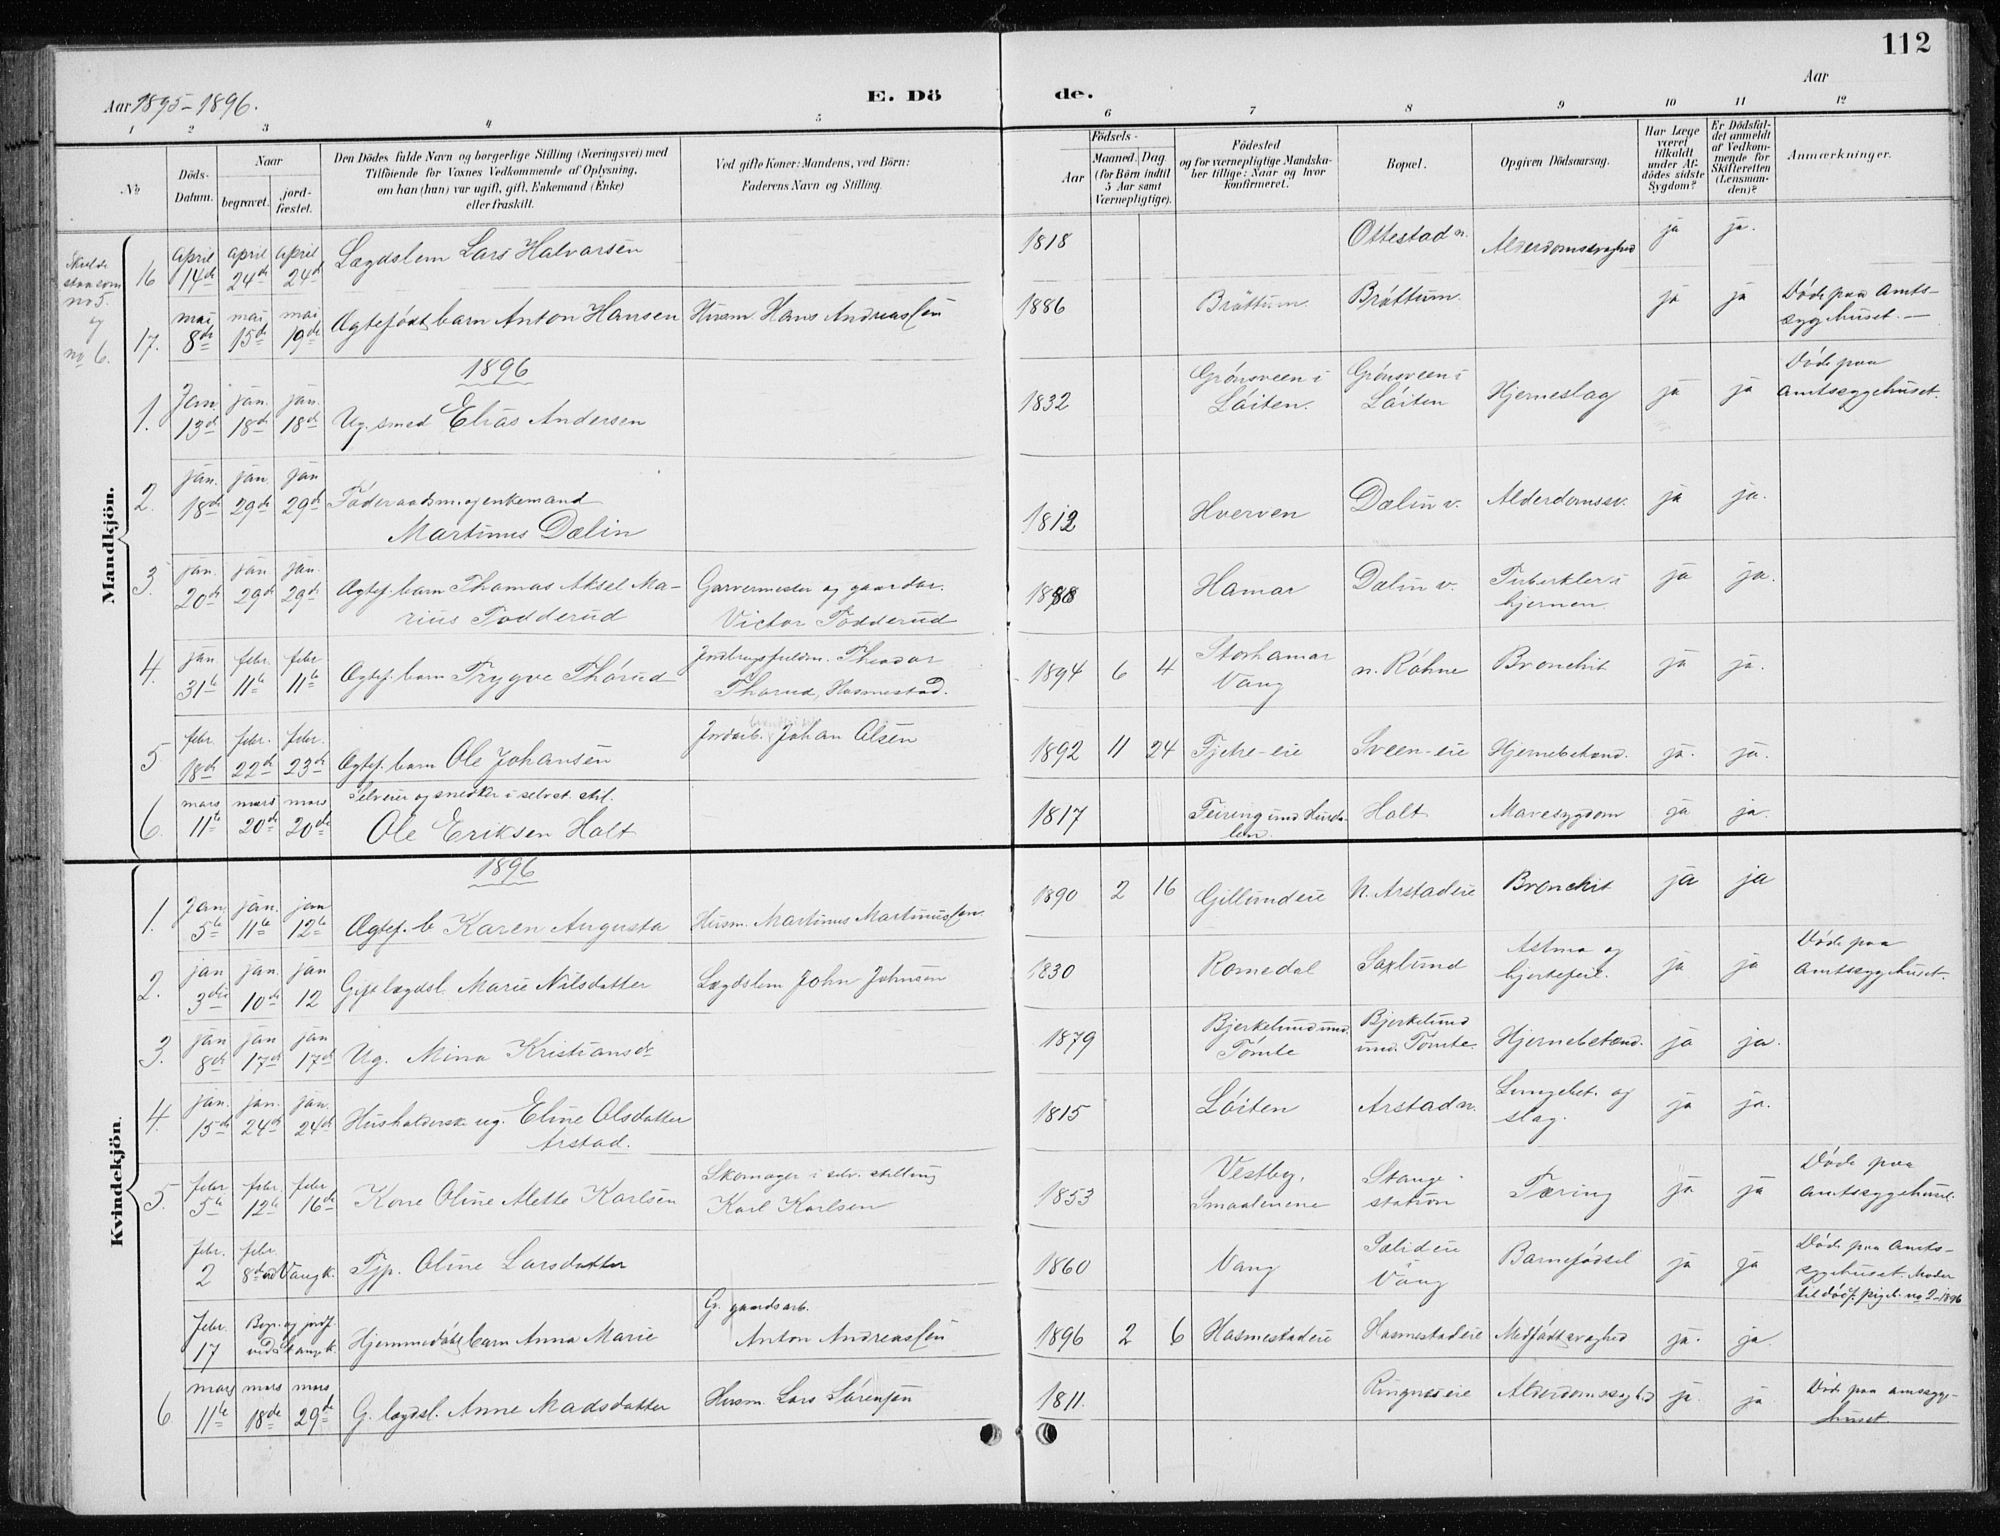 112
Aar 1895-1896.
E. Dö
de.
Aar
1 2 3 4 5 6 7 8 9 10 11 12
No
Döds-Datum.
Naar
begravet.
jord-fæstet.
Den Dödes fulde Navn og borgerlige Stilling (Næringsvei) med
Tilföiende for Voxnes Vedkommende af Oplysning,
om han (hun) var ugift, gift, Enkemand (Enke)
eller fraskilt.
Ved gifte Koner: Mandens, ved Börn:
Faderens Navn og Stilling.
Födsels-
Aar
Maaned. Dag.
(for Börn indtil
5 Aar samt
Værnepligtige).
Födested
og for værnepligtige Mandska-
ber tillige: Naar og hvor
konfirmeret.
Bopæl.
Opgiven Dödsaarsag.
Har Læge
været
tilkaldt
under Af-
dödes sidste
Sygdom?
Er Dödsfal-
det anmeldt
af Vedkom-
mende for
Skifteretten
(Lensman-
den)?
Anmærkninger.
Mandkjön.
Skulde staa som no 5. og no 6.
16 april 14de april 24de april 24de Lægdslem Lars Halvorsen 1818 Ottestad n. Alderdomssvaghed ja ja.
17. mai 8de mai 15de mai 19de Ægtefödt barn Anton Hansen Husm. Hans Andreassen 1886 Bröttum Bröttum ja ja Döde paa Amts-
sygehuset.
1896
1. Jan. 13de jan. 18de jan. 18de Ug. smed Elias Andersen 1832 Grönsveen i Löiten. Grönsveen i Löiten Hjerneslag ja ja Döde paa
Amtssygehuset.
2. jan. 18de jan. 29de jan. 29de Föderaadsm. og enkemand
Martinus Dælin 1812 Hverven Dælin v. Alderdomssv. ja ja.
3. jan. 20de jan. 29de jan. 29de Ægtef. barn Thomas Aksel Ma-
rius Todderud Garvermester og gaardbr.
Victor Todderud 1888 Hamar Dælin v. Tuberkler i
hjernen. ja ja.
4. jan 31te febr. 11te febr 11te Ægtef. barn Trygve Thörud Theodor
Thorud, Hasmestad. 1894 6 4 Storhamar
Vang n. Röhne Bronchit ja ja.
5 febr. 18de febr. 22de febr. 23de Ægtef. barn Ole Johansen Jordarb. Johan Olsen 1892 11 24 Tjetre-eie Sveen-eie Hjernebetænd. ja. ja.
6. mars 11te mars 20de mars 20de Selveier og snedker i selvst. stil.
Ole Eriksen Holt 1817 Feiring und Hurda-
len. Holt Mavesygdom ja ja.
Kvindekjön.
1896
1. Jan 5te jan. 11te jan 12te Ægtef. b Karen Augusta Husm. Martinus Martinussen. 1890 2 16 Gillundeie N. Arstadeie Bronchit ja ja
2. jan 3die jan. 10de jan 12 Gift lægdsl. Marie Nilsdatter Lægdslem John Johnsen 1830 Romedal Saxlund Astma og
hjertefeil. ja ja Döde paa
Amtssygehuset.
3. jan 8de jan 17de jan 17de Ug. Mina Kristiansdr 1879 Bjerkelund und.
Tömte Bjerkelund
und. Tömte. Hjernebetænd. ja ja.
4. jan. 15de jan. 24de jan. 24de Husholderske ug. Eline Olsdatter
Arstad. 1815 Löiten Arstad n. Lungebet. og
slag. ja ja.
5. febr 5te febr 12te febr 16de Kone Oline Mette Karlsen Skomager i selv. stilling
Karl Karlsen 1853 Vestby,
Smaalenene Stange-
station Tæring ja ja Döde paa
Amtssygehuset.
febr. 2 febr. 8de ved Vang k. Tjp. Oline Larsdatter 1860 Vang Sælid eie
i Vang Barnefödsel ja ja Döde paa Amts-
sygehuset. Moder
til dödf. pigeb. no 2-1896
Febr. 17 Begr. og jordf. ved Stange k. Hjemmedöbt barn Anna Marie G. gaardsarb.
Anton Andreassen 1896 2 6 Hasmestadeie Hasmestadeie Medfödt svaghed ja. ja.
6 mars 11te mars 18de mars 29de G. lægdsl. Anne Madsdatter Husm. Lars Sörensen 1811. Ringneseie Alderdomssvghd ja. ja. Döde paa amssyge-
huset.